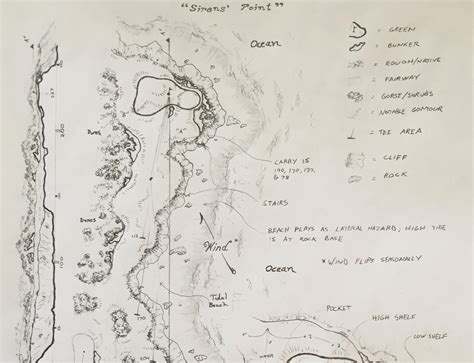 "Sirens' Point"
Ocean
= GREEN
= BUNKER
= ROUGH/NATIVE
= FAIRWAY
= GORSE/SHRUBS
= NOTABLE CONTOUR
= TEE AREA
= CLIFF
= ROCK
A'
A'
200
Dunes
Dunes
100
CARRY IS
190, 170, 137,
& 78
STAIRS
BEACH PLAYS AS LATERAL HAZARD; HIGH TIDE
IS AT ROCK BASE
"Wind"
Ocean
* WIND FLIPS SEASONALLY
Tidal
Beach
170
POCKET
HIGH SHELF
LOW SHELF